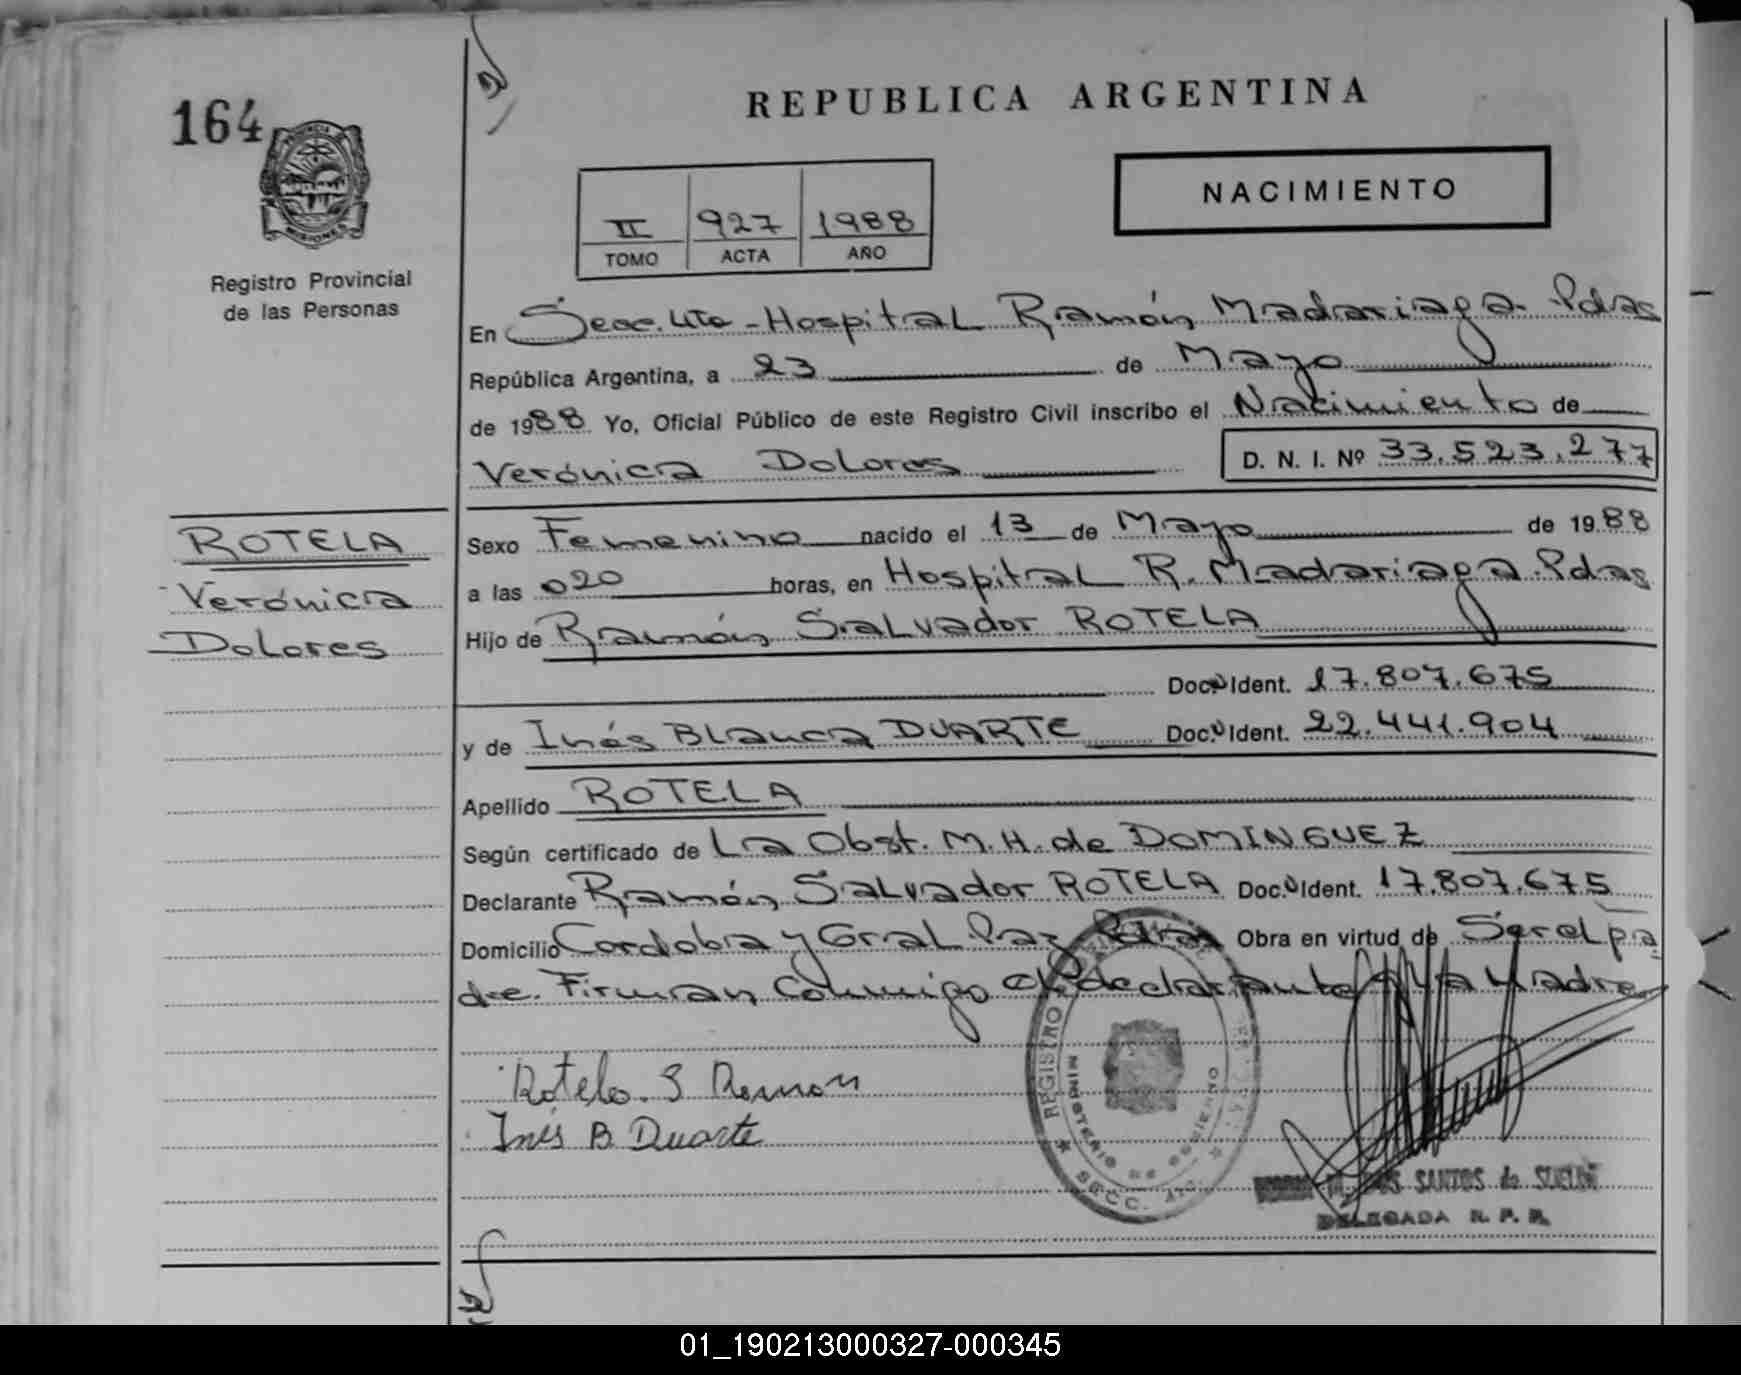 164
PROVINCIA DE
MISIONES
Registro Provincial
de las Personas
REPUBLICA ARGENTINA
II 927 1988
TOMO ACTA AÑO
NACIMIENTO
En Secc. 4ta - Hospital Ramón Madariaga - Pdas
República Argentina, a 23 de Mayo
de 1988 Yo, Oficial Público de este Registro Civil inscribo el Nacimiento de
Verónica Dolores D. N. I. Nº 33.523.277
ROTELA
Verónica
Dolores
Sexo Femenino nacido el 13 de Mayo de 1988
a las 020 horas, en Hospital R. Madariaga - Pdas
Hijo de Ramón Salvador ROTELA
Doc. Ident. 17.807.675
y de Inés Blanca DUARTE Doc. Ident. 22.441.904
Apellido ROTELA
Según certificado de La Obst. M. H. de DOMINGUEZ
Declarante Ramón Salvador ROTELA Doc. Ident. 17.807.675
Domicilio Cordoba y Gral Paz Pdas Obra en virtud de Ser el pa
dre. Firman conmigo el declarante y la Madre
Rotela S Ramon
Inés B Duarte
REGISTRO
MINISTERIO DE GOBIERNO
SECC. 4ta.
M. DOS SANTOS de
DELEGADA R. P. P.
01_190213000327-000345